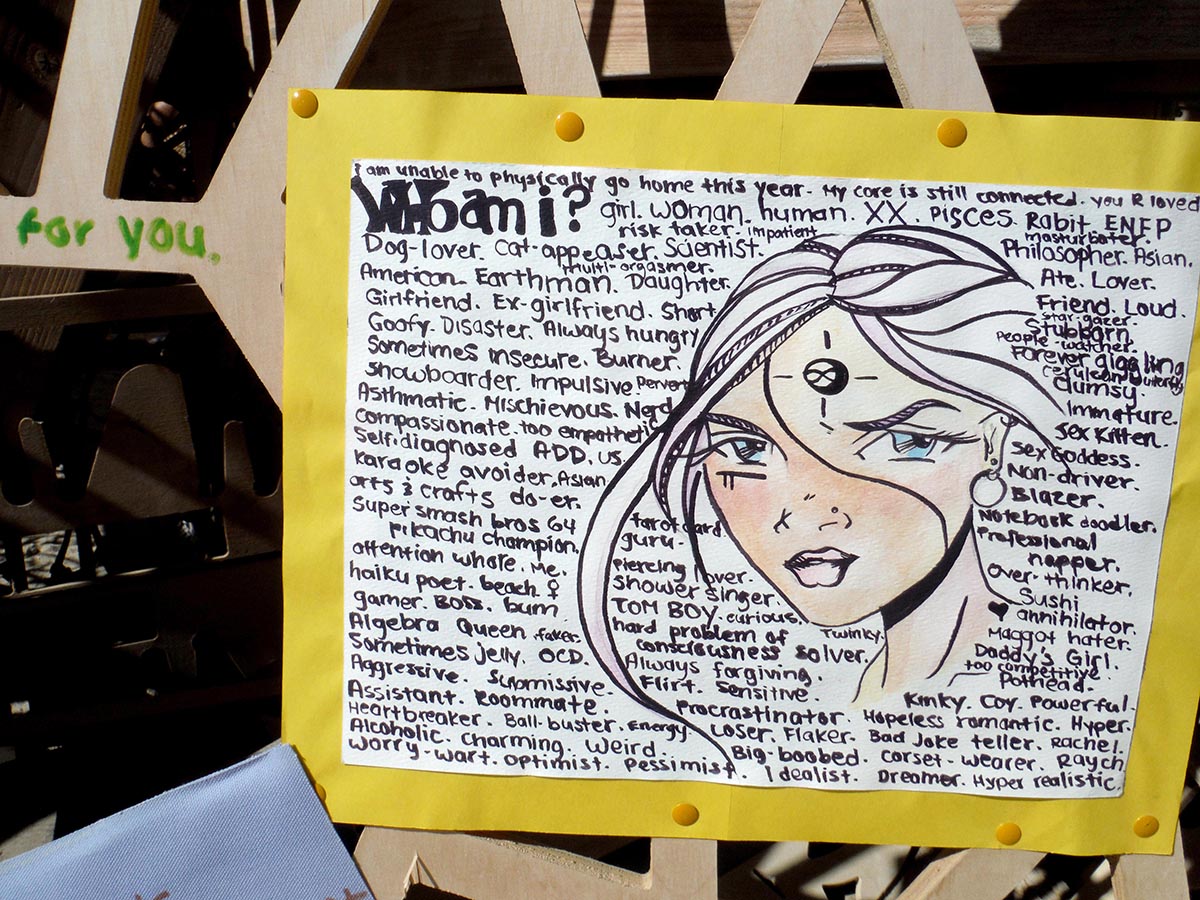 for you.
i am unable to physically go home this year. My core is still connected. you R loved
Who am i?
girl. woman. human. XX. Pisces Rabit ENFP
risk taker. impatient
masturbator.
Dog-lover. Cat-appeaser. Scientist.
Philosopher. Asian.
multi-orgasmer.
American. Earthman. Daughter.
Ate. Lover.
Girlfriend. Ex-girlfriend. Short
Friend. Loud.
star-gazer.
Goofy. Disaster. Always hungry
Stubborn.
People-watcher.
Sometimes insecure. Burner.
Forever giggling
cerulean butterfly
Snowboarder. Impulsive Pervert
clumsy.
Asthmatic. Mischievous. Nerd
Immature.
compassionate. too empathetic
Sex Kitten.
Self-diagnosed ADD. us
Sex Goddess.
karaoke avoider. Asian
Non-driver.
arts & crafts do-er.
Blazer.
Super smash bros 64
Notebook doodler.
pikachu champion.
Professional
napper.
attention whore. Me.
over-thinker.
haiku poet. beach ♀
Sushi
gamer. Boss. bum
♥ annihilator.
Algebra Queen. faker.
Maggot hater.
Sometimes jelly. OCD.
Daddy's Girl.
too competitive.
Aggressive. Submissive.
Pothead.
tarot card
guru.
piercing lover.
shower singer.
TOM BOY. curious.
Twinky.
hard problem of
consciousness solver.
Always forgiving.
Flirt. Sensitive.
Assistant. Roommate.
Kinky. Coy. Powerful.
Heartbreaker. Ball-buster. Energy
Procrastinator. Hopeless romantic. Hyper.
Alcoholic. Charming. Weird.
Loser. Flaker. Bad Joke teller. Rachel.
Worry-wart. Optimist. Pessimist.
Big-boobed. corset-wearer. Raych
Idealist. Dreamer. Hyper realistic.